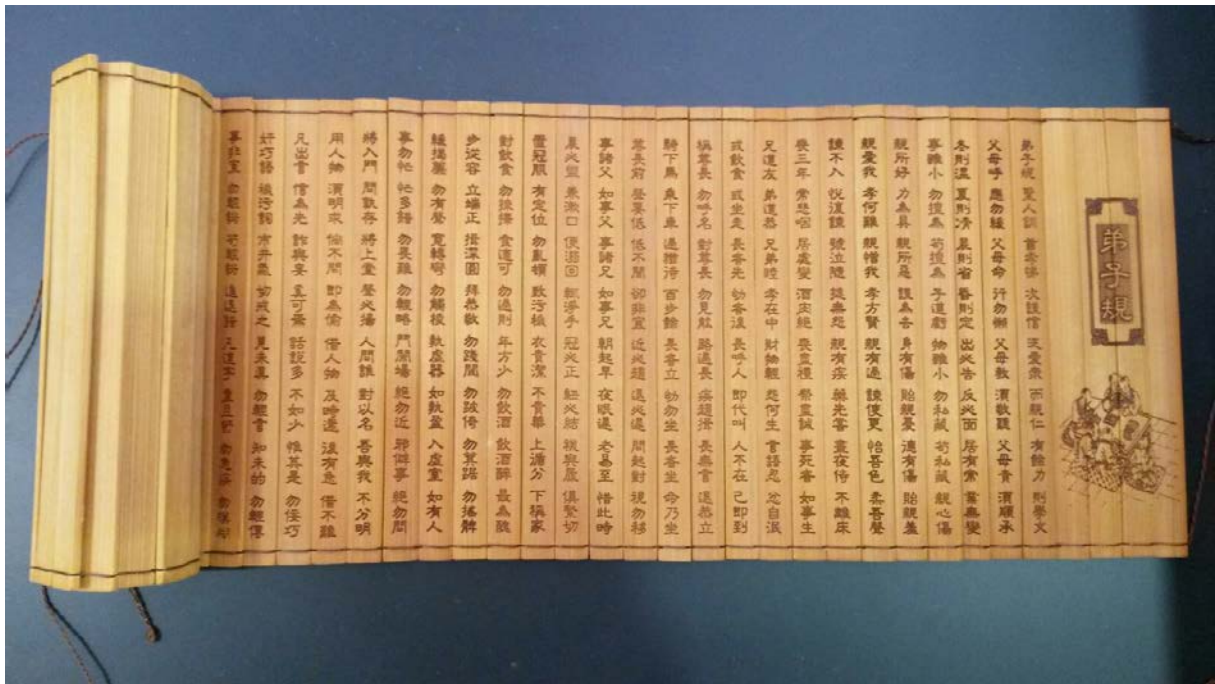 弟子規
弟子規 聖人訓 首孝悌 次謹信 汎愛眾 而親仁 有餘力 則學文
父母呼 應勿緩 父母命 行勿懶 父母教 須敬聽 父母責 須順承
冬則溫 夏則凊 晨則省 昏則定 出必告 反必面 居有常 業無變
事雖小 勿擅為 苟擅為 子道虧 物雖小 勿私藏 苟私藏 親心傷
親所好 力為具 親所惡 謹為去 身有傷 貽親憂 德有傷 貽親羞
親愛我 孝何難 親憎我 孝方賢 親有過 諫使更 怡吾色 柔吾聲
諫不入 悅復諫 號泣隨 撻無怨 親有疾 藥先嘗 晝夜侍 不離床
喪三年 常悲咽 居處變 酒肉絕 喪盡禮 祭盡誠 事死者 如事生
兄道友 弟道恭 兄弟睦 孝在中 財物輕 怨何生 言語忍 忿自泯
或飲食 或坐走 長者先 幼者後 長呼人 即代叫 人不在 己即到
稱尊長 勿呼名 對尊長 勿見能 路遇長 疾趨揖 長無言 退恭立
騎下馬 乘下車 過猶待 百步餘 長者立 幼勿坐 長者坐 命乃坐
尊長前 聲要低 低不聞 卻非宜 近必趨 退必遲 問起對 視勿移
事諸父 如事父 事諸兄 如事兄 朝起早 夜眠遲 老易至 惜此時
晨必盥 兼漱口 便溺回 輒淨手 冠必正 紐必結 襪與履 俱緊切
置冠服 有定位 勿亂頓 致污穢 衣貴潔 不貴華 上循分 下稱家
對飲食 勿揀擇 食適可 勿過則 年方少 勿飲酒 飲酒醉 最為醜
步從容 立端正 揖深圓 拜恭敬 勿踐閾 勿跛倚 勿箕踞 勿搖髀
緩揭簾 勿有聲 寬轉彎 勿觸棱 執虛器 如執盈 入虛室 如有人
事勿忙 忙多錯 勿畏難 勿輕略 鬥鬧場 絕勿近 邪僻事 絕勿問
將入門 問孰存 將上堂 聲必揚 人問誰 對以名 吾與我 不分明
用人物 須明求 倘不問 即為偷 借人物 及時還 後有急 借不難
凡出言 信為先 詐與妄 奚可焉 話說多 不如少 惟其是 勿佞巧
奸巧語 穢污詞 市井氣 切戒之 見未真 勿輕言 知未的 勿輕傳
事非宜 勿輕諾 苟輕諾 進退錯 凡道字 重且舒 勿急疾 勿模糊